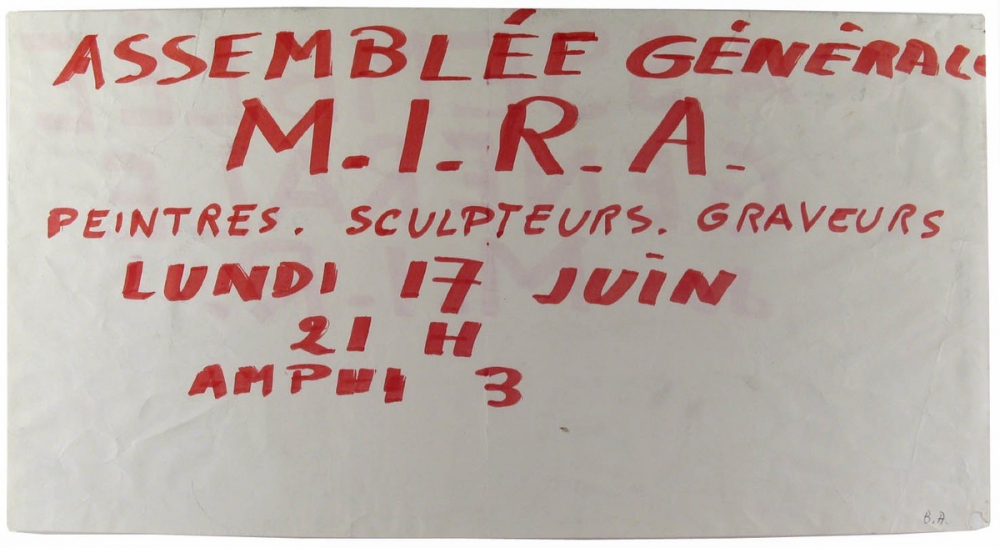 ASSEMBLÉE GÉNÉRALE
M.I.R.A.
PEINTRES. SCULPTEURS. GRAVEURS
LUNDI 17 JUIN
21 H
AMPHI 3
B.A.